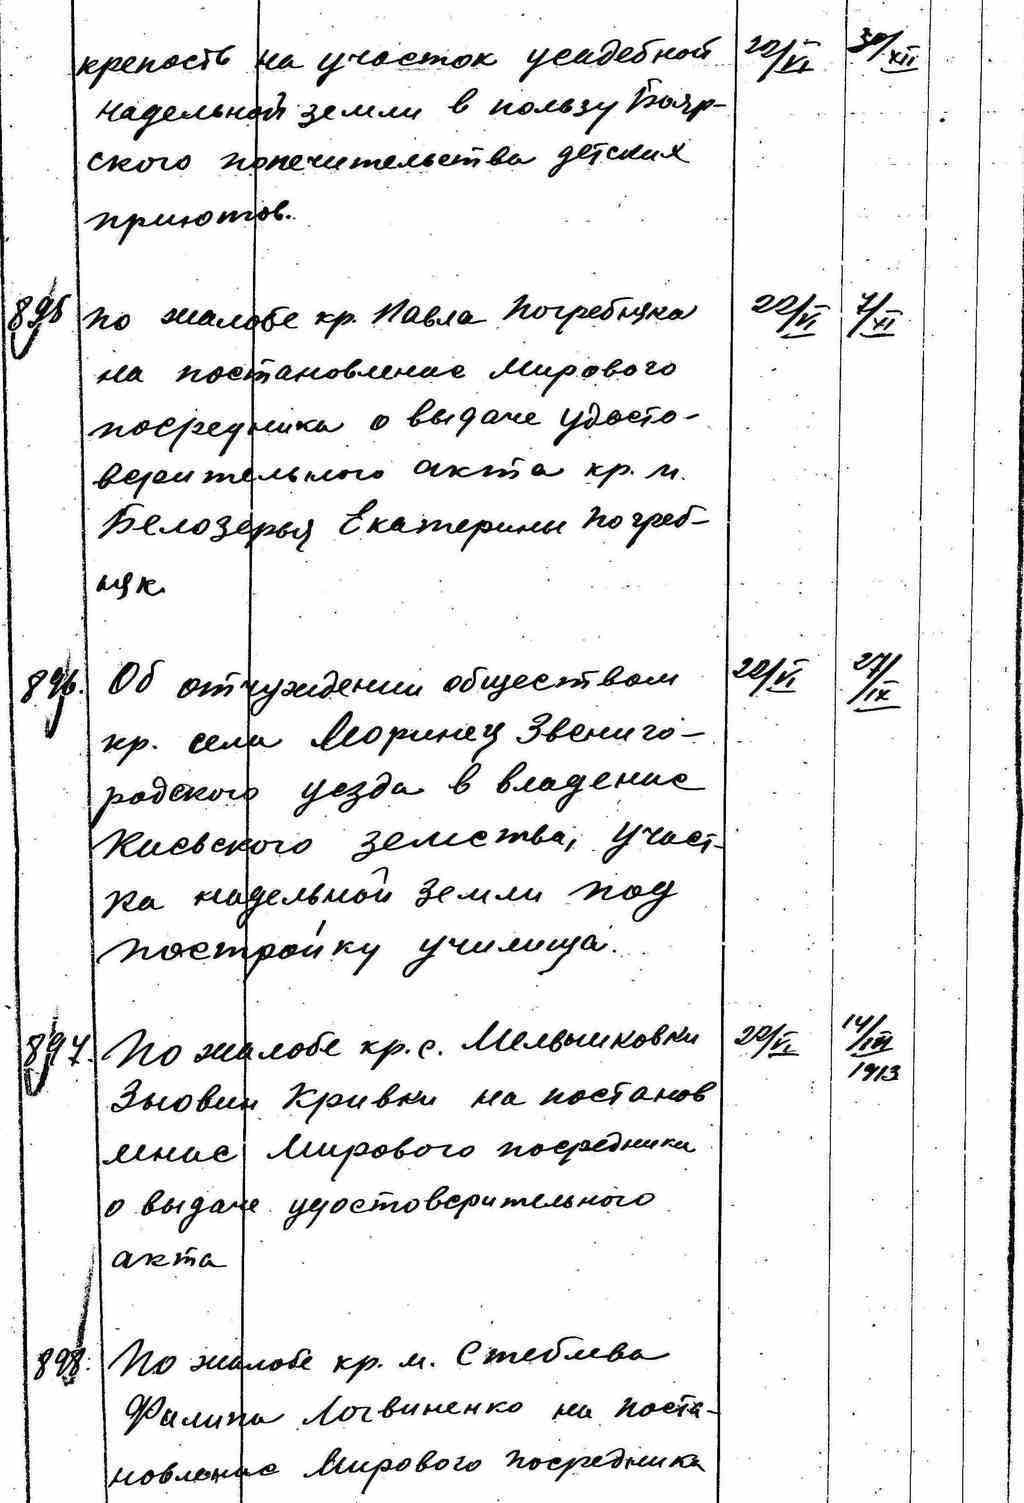 крепость на участок усадебной 22/VI 30/XII
надельной земли в пользу Бояр-
ского попечительства детских
приютов.
895 По жалобе кр. Павла Погребняка 22/VI 7/XI
на постановление Мирового
посредника о выдаче удосто-
верительного акта кр. м.
Белозерья Екатерины Погреб-
няк.
896. Об отчуждении обществом 22/VI 27/IX
кр. села Моринец Звениго-
родского уезда в владение
Киевского земства, участ-
ка надельной земли под
постройку училища.
897. По жалобе кр. с. 22/VI 14/III
Кривки на постанов 1913
ление Мирового посредника
о выдаче удостоверительного
акта
898. По жалобе кр. м. Стеблева
Филипа Логвиненко на поста-
новление Мирового посредника